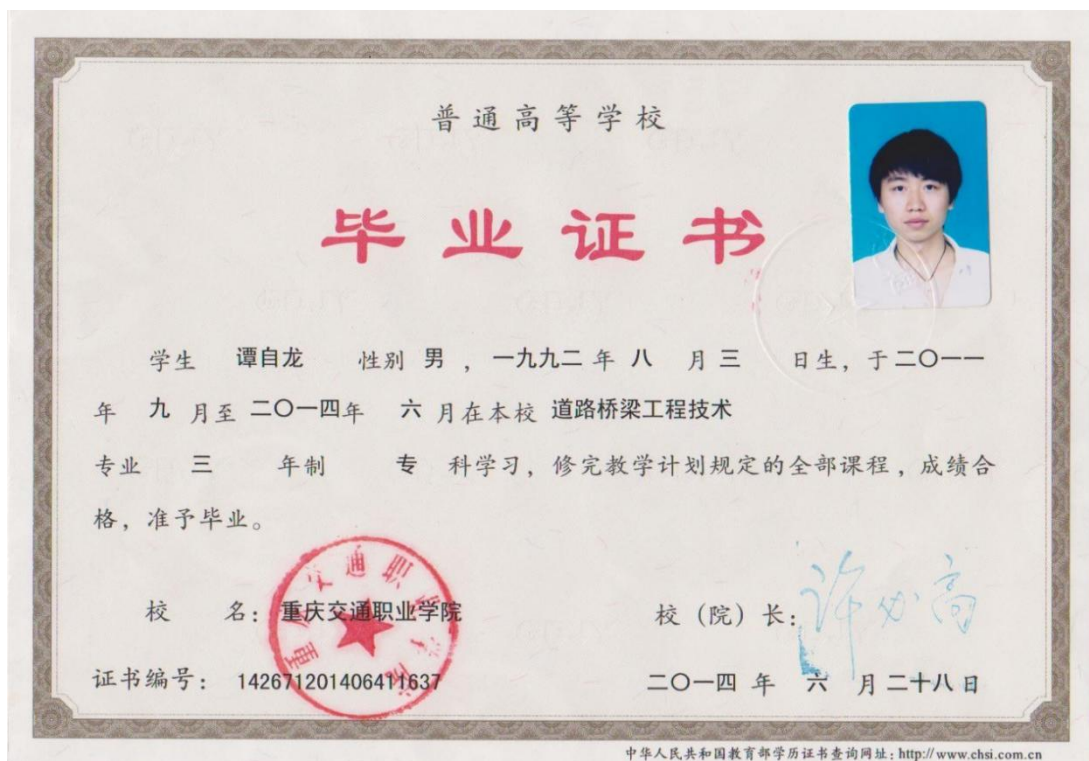 普通高等学校
毕业证书
学生 谭自龙 性别 男 ，一九九二 年 八 月 三 日生，于二〇一一
年 九 月至 二〇一四年 六 月在本校 道路桥梁工程技术
专业 三 年制 专 科学习，修完教学计划规定的全部课程，成绩合
格，准予毕业。
校 名：重庆交通职业学院
校（院）长：
重庆交通职业学院
证书编号： 142671201406411637
二〇一四 年 六 月二十八日
中华人民共和国教育部学历证书查询网址：http://www.chsi.com.cn